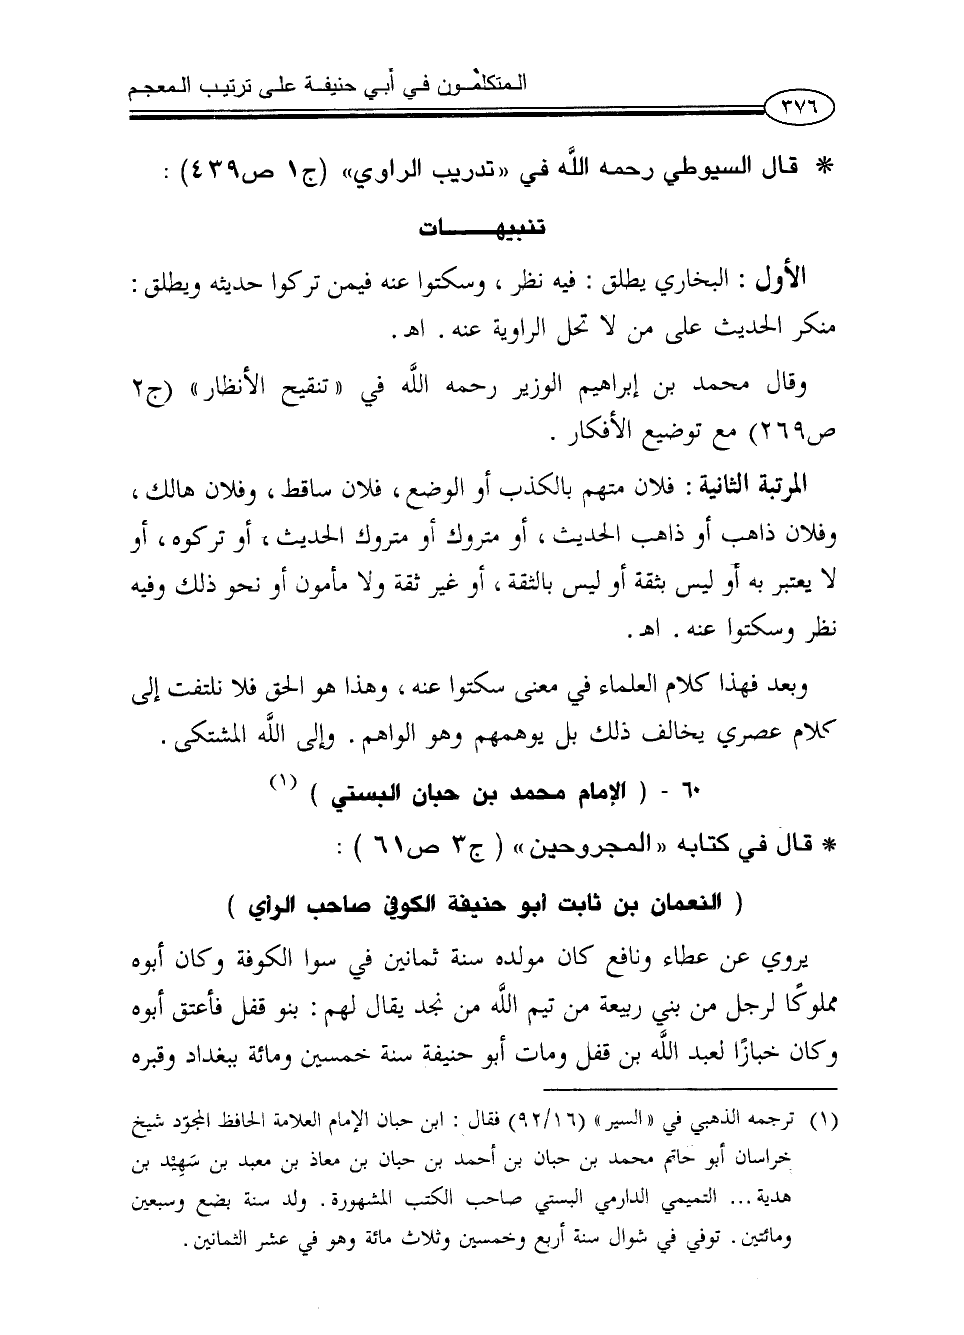 المتكلمون في أبي حنيفة على ترتيب المعجم
٣٧٦
* قال السيوطي رحمه اللَّه في «تدريب الراوي» (ج١ ص٤٣٩) :
تنبيهـــــات
الأول : البخاري يطلق : فيه نظر ، وسكتوا عنه فيمن تركوا حديثه ويطلق :
منكر الحديث على من لا تحل الراوية عنه . اهـ .
وقال محمد بن إبراهيم الوزير رحمه اللَّه في «تنقيح الأنظار» (ج٢
ص٢٦٩) مع توضيع الأفكار .
المرتبة الثانية : فلان متهم بالكذب أو الوضع ، فلان ساقط ، وفلان هالك ،
وفلان ذاهب أو ذاهب الحديث ، أو متروك أو متروك الحديث ، أو تركوه ، أو
لا يعتبر به أو ليس بثقة أو ليس بالثقة ، أو غير ثقة ولا مأمون أو نحو ذلك وفيه
نظر وسكتوا عنه . اهـ .
وبعد فهذا كلام العلماء في معنى سكتوا عنه ، وهذا هو الحق فلا نلتفت إلى
كلام عصري يخالف ذلك بل يوهمهم وهو الواهم . وإلى اللَّه المشتكى .
٦٠ - ( الإمام محمد بن حبان البستي ) (١)
* قال في كتابه «المجروحين» ( ج٣ ص٦١ ) :
( النعمان بن ثابت ابو حنيفة الكوفي صاحب الرأي )
يروي عن عطاء ونافع كان مولده سنة ثمانين في سوا الكوفة وكان أبوه
مملوكًا لرجل من بني ربيعة من تيم اللَّه من نجد يقال لهم : بنو قفل فأعتق أبوه
وكان خبازًا لعبد اللَّه بن قفل ومات أبو حنيفة سنة خمسين ومائة ببغداد وقبره
(١) ترجمه الذهبي في «السير» (٩٢/١٦) فقال : ابن حبان الإمام العلامة الحافظ المجوّد شيخ
خراسان أبو حَاتم محمد بن حبان بن أحمد بن حبان بن معاذ بن معبد بن سَهِيْد بن
هدية ... التميمي الدارمي البستي صاحب الكتب المشهورة . ولد سنة بضع وسبعين
ومائتين . توفي في شوال سنة أربع وخمسين وثلاث مائة وهو في عشر الثمانين .